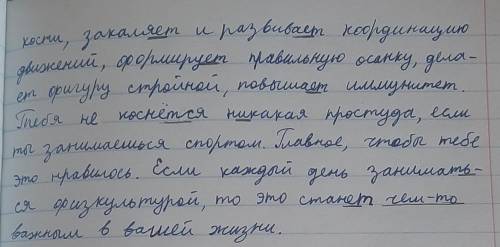 кости, закаляет и развивает координацию
движений, формирует правильную осанку, дела-
ет фигуру стройной, повышает иммунитет.
Тебя не коснётся никакая простуда, если
ты занимаешься спортом. Главное, чтобы тебе
это нравилось. Если каждый день занимать-
ся физкультурой, то это станет чем-то
важным в вашей жизни.